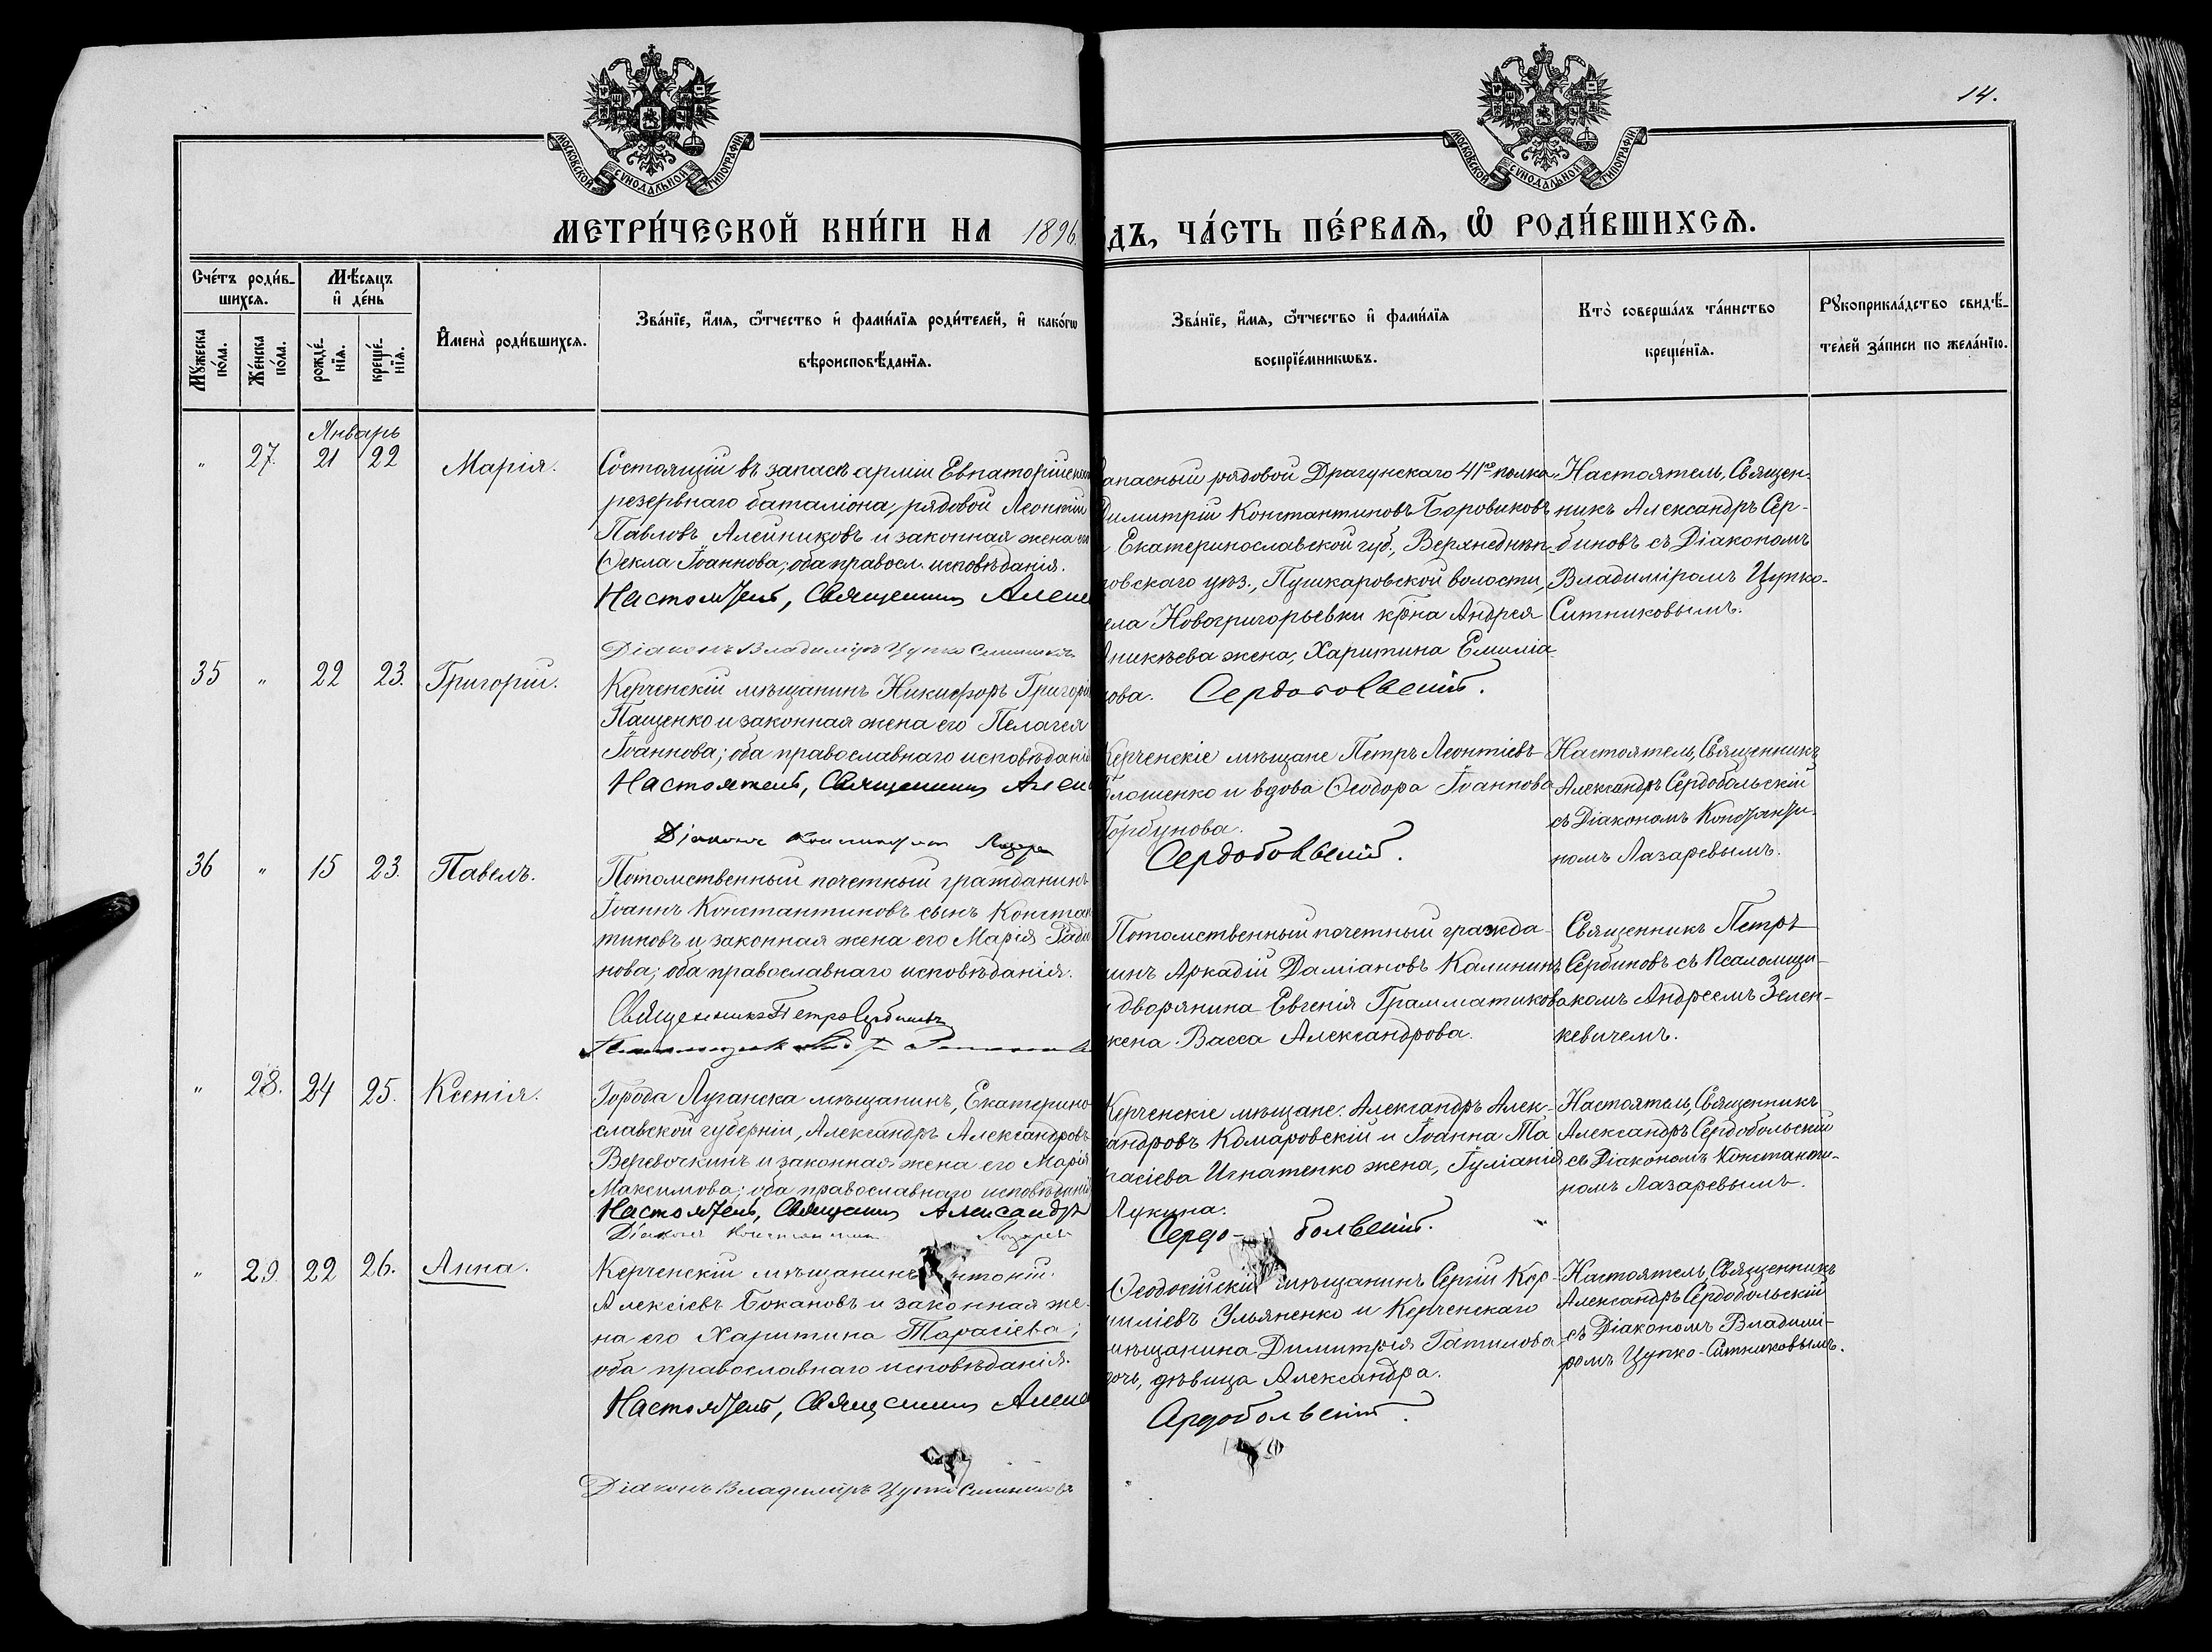 14.
МОСКОВСКОЙ СѴНОДАЛЬНОЙ ТИПОГРАФІИ
МОСКОВСКОЙ СѴНОДАЛЬНОЙ ТИПОГРАФІИ
МЕТРИ́ЧЕСКОЙ КНИ́ГИ НА 1896
ДЪ, ЧА́СТЬ ПЕ́РВАѦ, Ѡ РОДИ́ВШИХСѦ.
Сче́тъ роди́в-
шихсѧ.
Мѣ́сяцъ
и҆ де́нь
Мꙋ́жеска по́ла.
Же́нска по́ла.
рожде́нїѧ.
креще́нїѧ.
И҆мена̀ роди́вшихсѧ.
Зва́нїе, и҆́мѧ, ѻ҆́тчество и҆ фами́лїѧ роди́телей, и҆ како́гѡ
вѣроисповѣ́данїѧ.
Зва́нїе, и҆́мѧ, ѻ҆́тчество и҆ фами́лїѧ
воспрїе́мникѡвъ.
Кто̀ соверша́лъ та́инство
креще́нїѧ.
Рꙋкоприкла́дство свидѣ́-
телей за́писи по жела́нїю.
Январь
" 27. 21 22 Марія.
Состоящій въ запасѣ арміи Евпаторійскаго
резервнаго баталіона, рядовой Леонтій
Павловъ Алейниковъ и законная жена его
Ѳекла Іоаннова; оба правосл. исповѣданія.
Настоятель, Священникъ
Діаконъ Владиміръ Цупко Ситниковъ
апасный рядовой Драгунскаго 41го полка
Димитрій Константиновъ Боровиковъ
Екатеринославской губ., Верхнеднѣп-
ровскаго уѣз., Пушкаровской волости,
ела Новогригорьевки кр҃на Андрея
Аникѣева жена, Харитина Емиліа-
нова. Сердобольскій.
Настоятель, Священ-
никъ Александръ Сер-
биновъ съ Діакономъ
Владиміромъ Цупко-
Ситниковымъ.
35 " 22 23. Григорій.
Керченскій мѣщанинъ Никифоръ Григорі
Пащенко и законная жена его Пелагея
Іоаннова; оба православнаго исповѣдані
Настоятель, Священникъ
Діаконъ Константинъ Лазаре
Керченскіе мѣщане Петръ Леонтіевъ
лошенко и вдова Ѳеодора Іоаннова
Горбунова.
Сердобольскій.
Настоятель, Священникъ
Александръ Сердобольскій
съ Діакономъ Константи-
номъ Лазаревымъ.
36 " 15 23. Павелъ.
Потомственный почетный гражданинъ
Іоаннъ Константиновъ сынъ Констан
тиновъ и законная жена его Марія Радіо
нова; оба православнаго исповѣданія.
Священникъ Петръ Сербиновъ
Потомственный почетный гражда-
нинъ Аркадій Даміановъ Калининъ
и дворянина Евгенія Грамматикова
жена Васса Александрова.
Священникъ Петръ
Сербиновъ съ Псаломщи-
комъ Андреемъ Зелен-
кевичемъ.
" 28. 24 25. Ксенія.
Города Луганска мѣщанинъ, Екатерино
славской губерніи, Александръ Александровъ
Веревочкинъ и законная жена его Марія
Максимова; оба православнаго исповѣданія
Настоятель, Священникъ Александръ
Діаконъ Константинъ Лазаревъ
Керченскіе мѣщане: Александръ Алек-
сандровъ Комаровскій и Іоанна Та
расіева Игнатенко жена, Іуліанія
Лукина.
Сердо- больскій.
Настоятель, Священникъ
Александръ Сердобольскій
съ Діакономъ Константи-
номъ Лазаревымъ.
" 29. 22 26. Анна.
Керченскій мѣщанинъ Антоній
Алексіевъ Бокановъ и законная же-
на его Харитина Тарасіева;
оба православнаго исповѣданія.
Настоятель, Священникъ
Діаконъ Владиміръ Цупко Ситниковъ
Ѳеодосійскій мѣщанинъ Сергій Кор-
ниліевъ Ульяненко и Керченскаго
мѣщанина Димитрія Гатилова
дочь, дѣвица Александра.
Сердобольскій.
Настоятель, Священникъ
Александръ Сердобольскій
съ Діакономъ Владимі-
ромъ Цупко-Ситниковымъ.